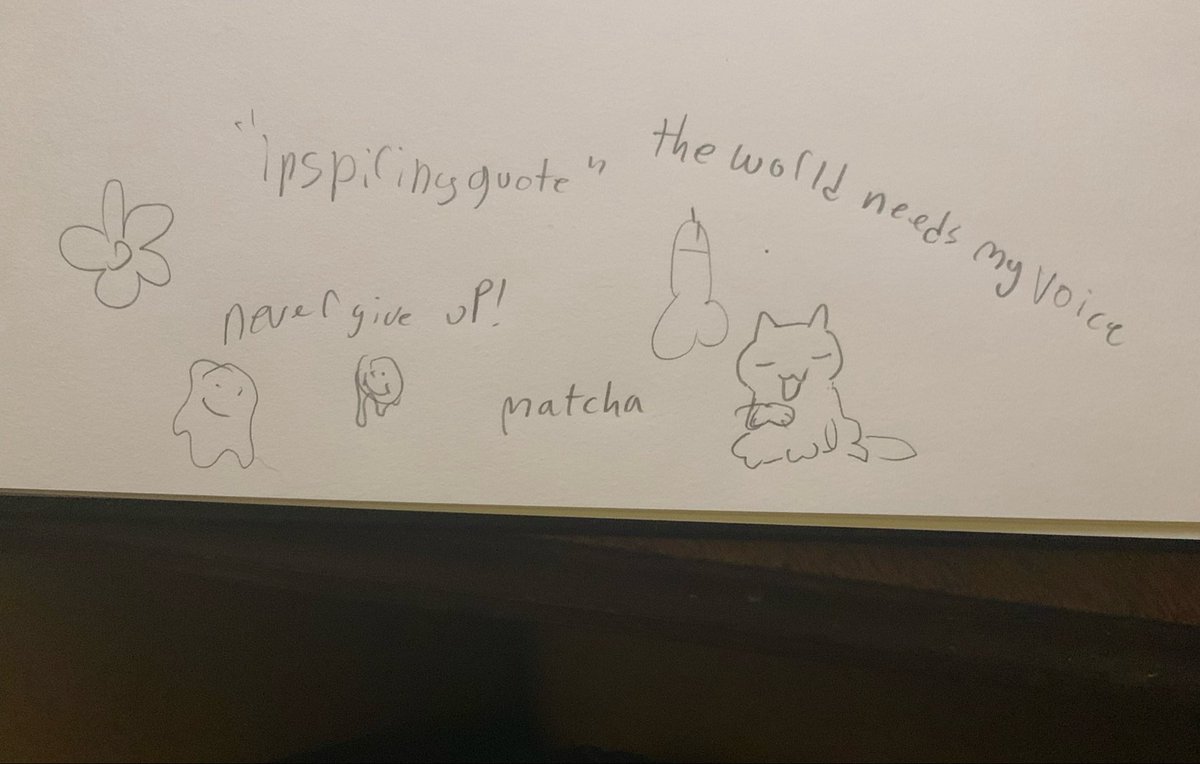 "inspiring quote"
the world needs my voice
never give up!
matcha